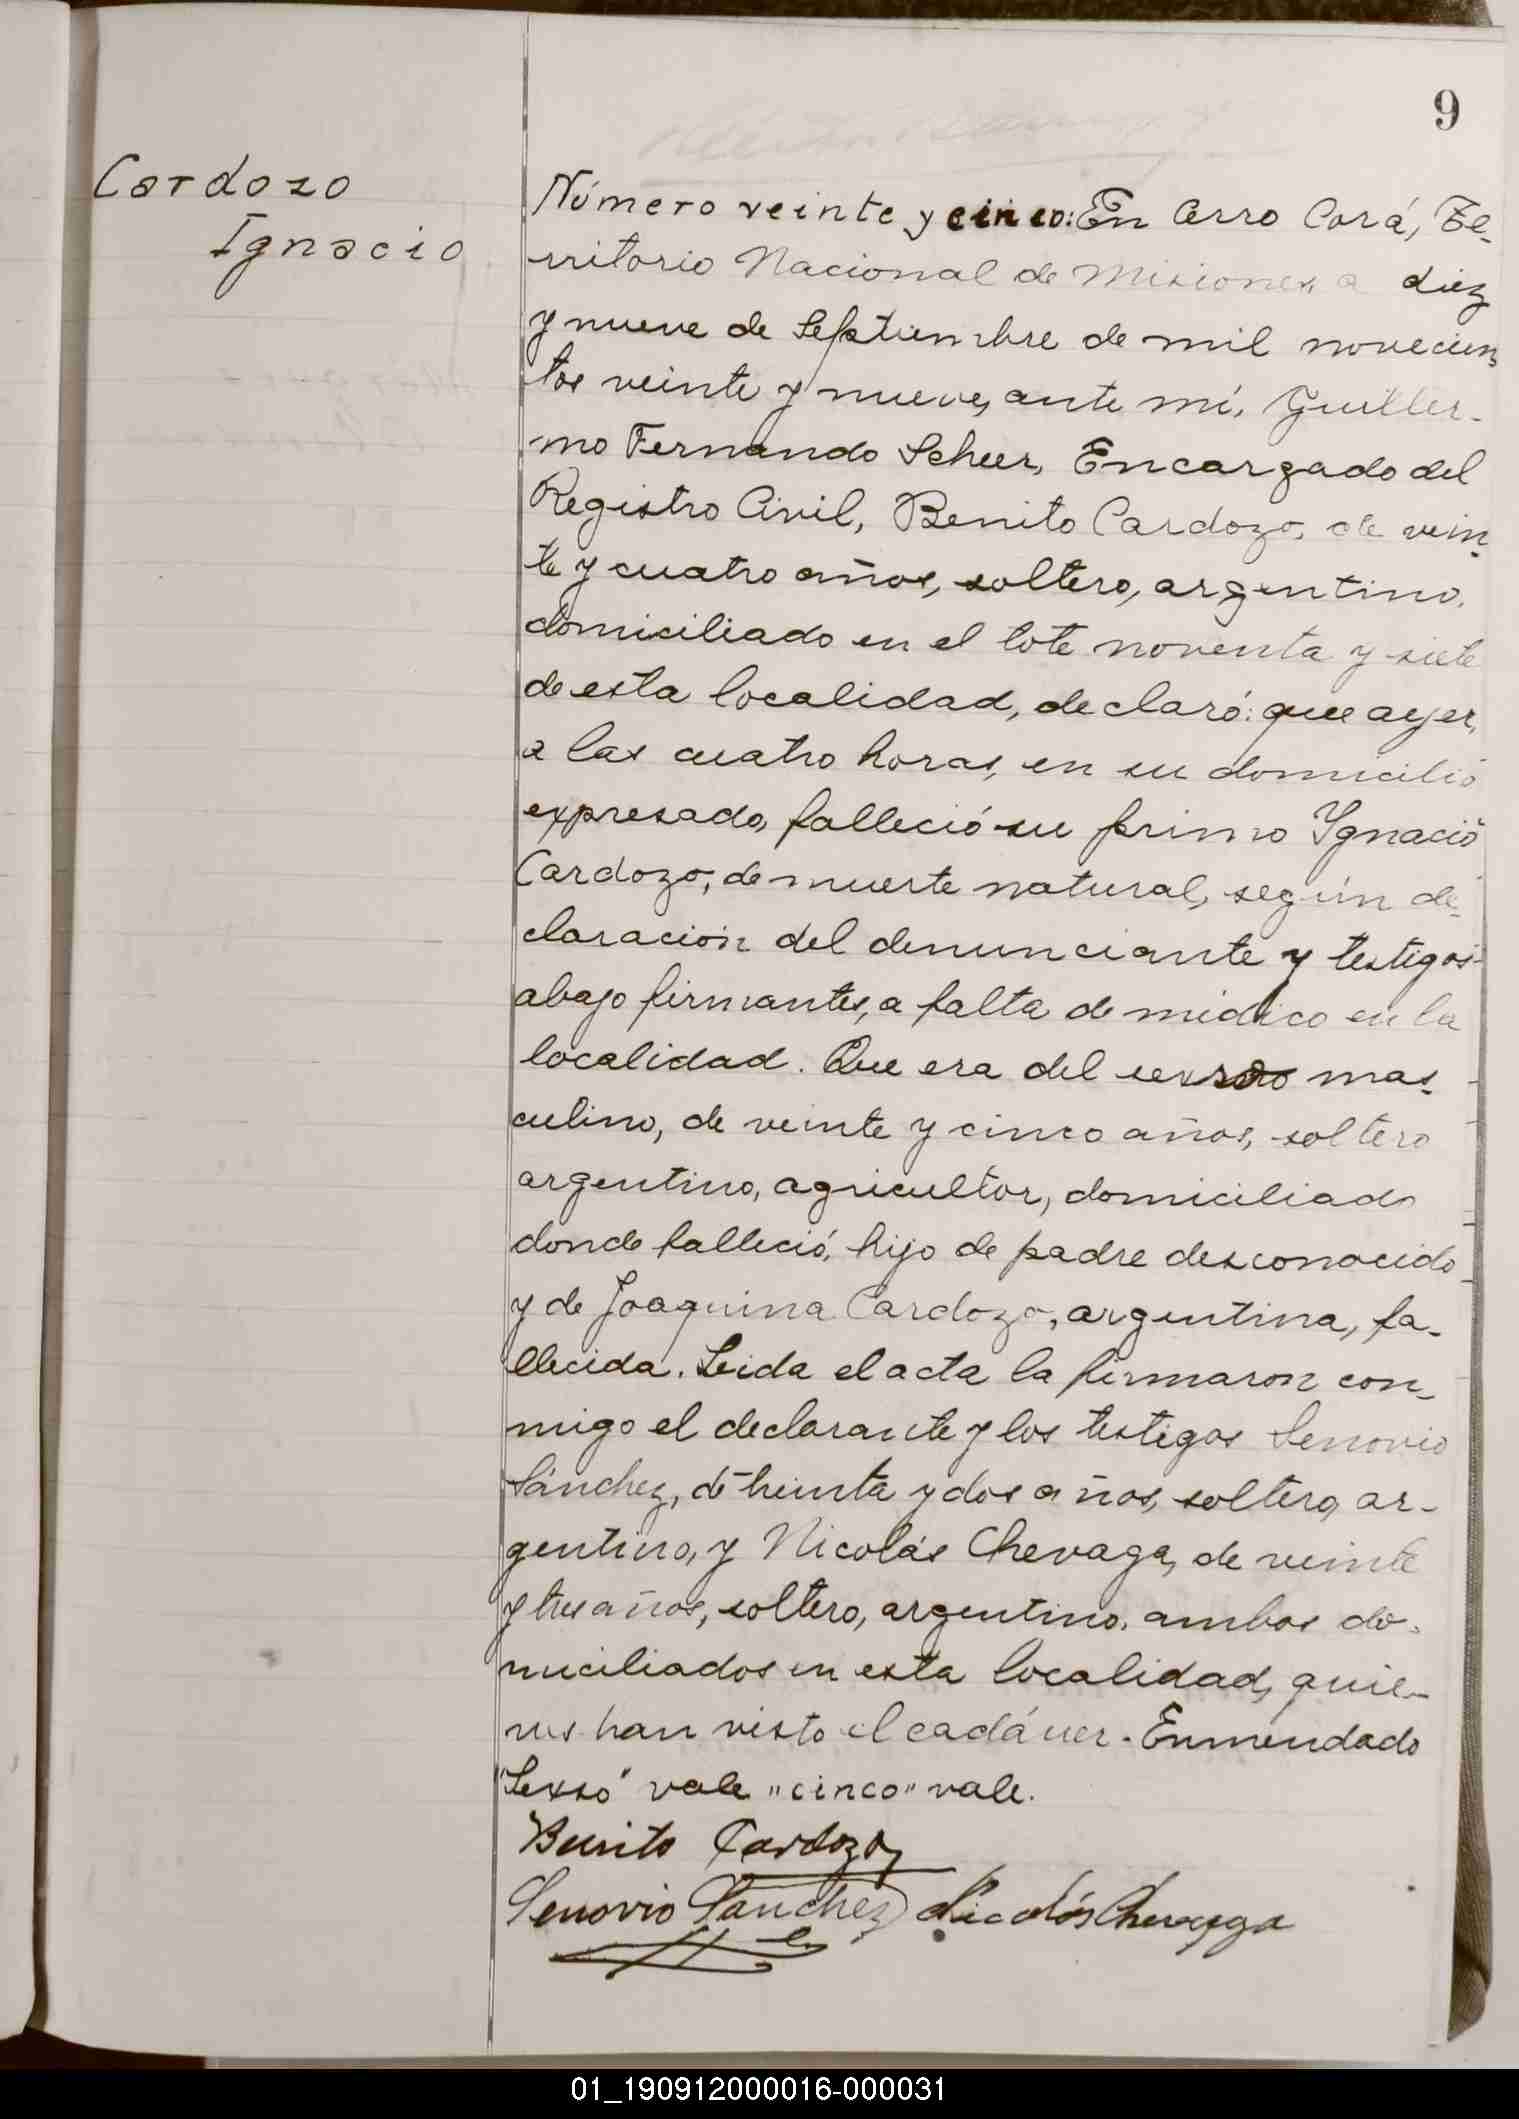 9
Cardozo
Ignacio
Número veinte y cinco: En Cerro Corá, Te-
rritorio Nacional de Misiones, a diez
y nueve de Septiembre de mil novecien-
tos veinte y nueve, ante mí, Guiller-
mo Fernando Scheer, Encargado del
Registro Civil, Benito Cardozo, de vein-
te y cuatro años, soltero, argentino,
domiciliado en el lote noventa y siete
de esta localidad, declaró: que ayer,
a las cuatro horas, en su domicilio
expresado, falleció su primo Ignacio
Cardozo, de muerte natural, según de-
claración del denunciante y testigos
abajo firmantes, a falta de médico en la
localidad. Que era del sexso mas-
culino, de veinte y cinco años, soltero
argentino, agricultor, domiciliado
donde falleció, hijo de padre desconocido
y de Joaquina Cardozo, argentina, fa-
llecida. Leida el acta la firmaron con-
migo el declarante y los testigos Senovio
Sánchez, de treinta y dos años, soltero, ar-
gentino, y Nicolás Chevaga, de veinte
y tres años, soltero, argentino, ambos do-
miciliados en esta localidad, quie-
nes han visto el cadáver. Enmendado
"Sexso" vale "cinco" vale.
Benito Cardozo
Senovio Sanchez Nicolás Chevaga
01_190912000016-000031